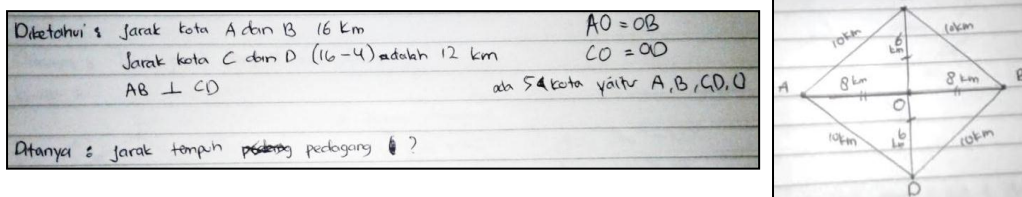 Diketahui : Jarak kota A dan B 16 km
AO = OB
Jarak kota C dan D (16-4) adalah 12 km
CO = OD
AB ⊥ CD
ada 5 kota yaitu A, B, C, D, O
Ditanya : jarak tempuh pedagang ?
10km
10km
6 km
A
8 km
8 km
B
O
10km
6 km
10km
D